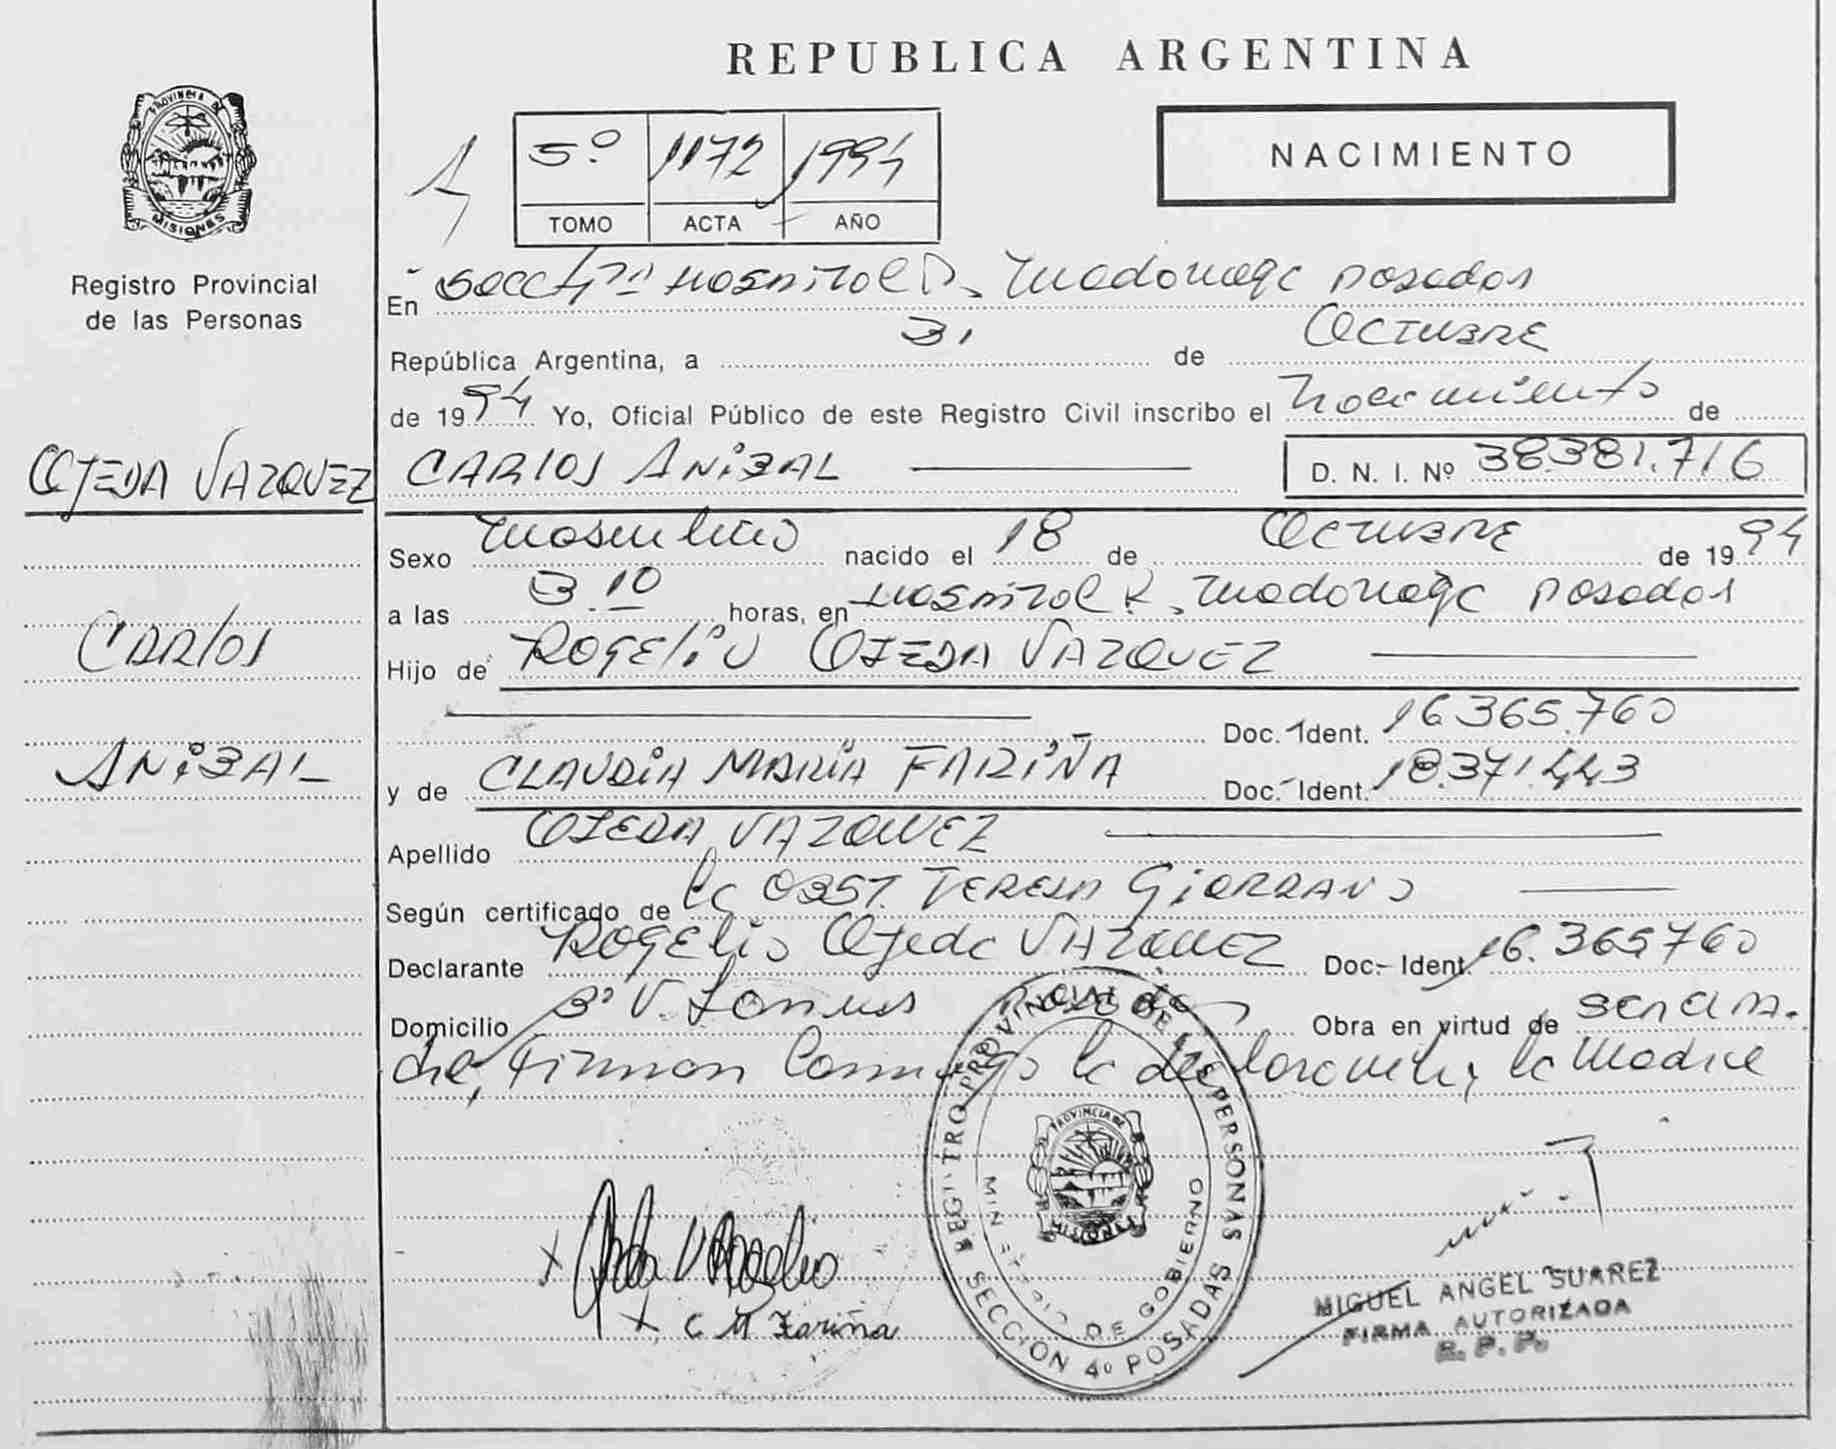 REPUBLICA ARGENTINA
PROVINCIA DE
MISIONES
Registro Provincial
de las Personas
5º 1172 1994
TOMO ACTA AÑO
NACIMIENTO
En Secc 4ta Hospital R. Madariaga Posadas
República Argentina, a 31 de Octubre
de 1994 Yo, Oficial Público de este Registro Civil inscribo el Nacimiento de
OJEDA VAZQUEZ CARLOS ANIBAL D. N. I. Nº 38.381.716
Sexo Masculino nacido el 18 de Octubre de 1994
a las 3.10 horas, en Hospital R. Madariaga Posadas
CARLOS
Hijo de ROGELIO OJEDA VAZQUEZ
Doc. Ident. 16.365.760
ANIBAL
y de CLAUDIA MARIA FARIÑA Doc. Ident. 18.371.443
Apellido OJEDA VAZQUEZ
Según certificado de la OBST. TERESA GIORDANO
Declarante ROGELIO Ojeda VAZQUEZ Doc. Ident. 16.365760
Domicilio Bº V. Lanus Posadas Obra en virtud de ser el pa-
dre, Firman Conmigo la declaración y la Madre
REGISTRO PROVINCIAL DE LAS PERSONAS
MINISTERIO DE GOBIERNO
PROVINCIA DE
MISIONES
SECCION 4º POSADAS
x
x C M Fariña
MIGUEL ANGEL SUAREZ
FIRMA AUTORIZADA
R. P. P.